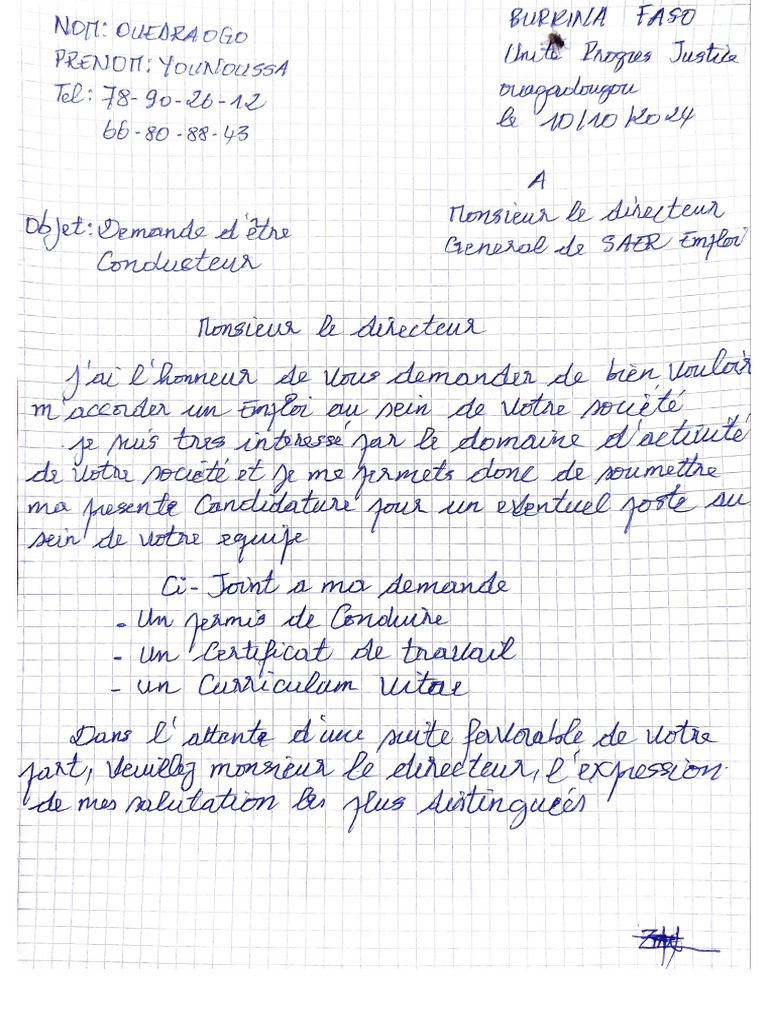 NOM: OUEDRAOGO
PRENOM: YOUNOUSSA
Tel: 78-90-26-12
66-80-88-43
BURKINA FASO
Unité Progres Justice
ouagadougou
le 10/10/2024
A
Monsieur le directeur
General de SAER Emploi
Objet: Demande d'être
Conducteur
Monsieur le directeur
J'ai l'honneur de vous demander de bien vouloir
m'accorder un Emploi au sein de votre société
je suis tres interessé par le domaine d'activité
de votre société et je me permets donc de soumettre
ma presente Candidature pour un eventuel poste au
sein de votre equipe
Ci-Joint a ma demande
- Un permis de Conduire
- un Certificat de travail
- un Curriculum Vitae
Dans l'attente d'une suite favorable de votre
part, Veuillez monsieur le directeur, l'expression
de mes salutation les plus distinguées